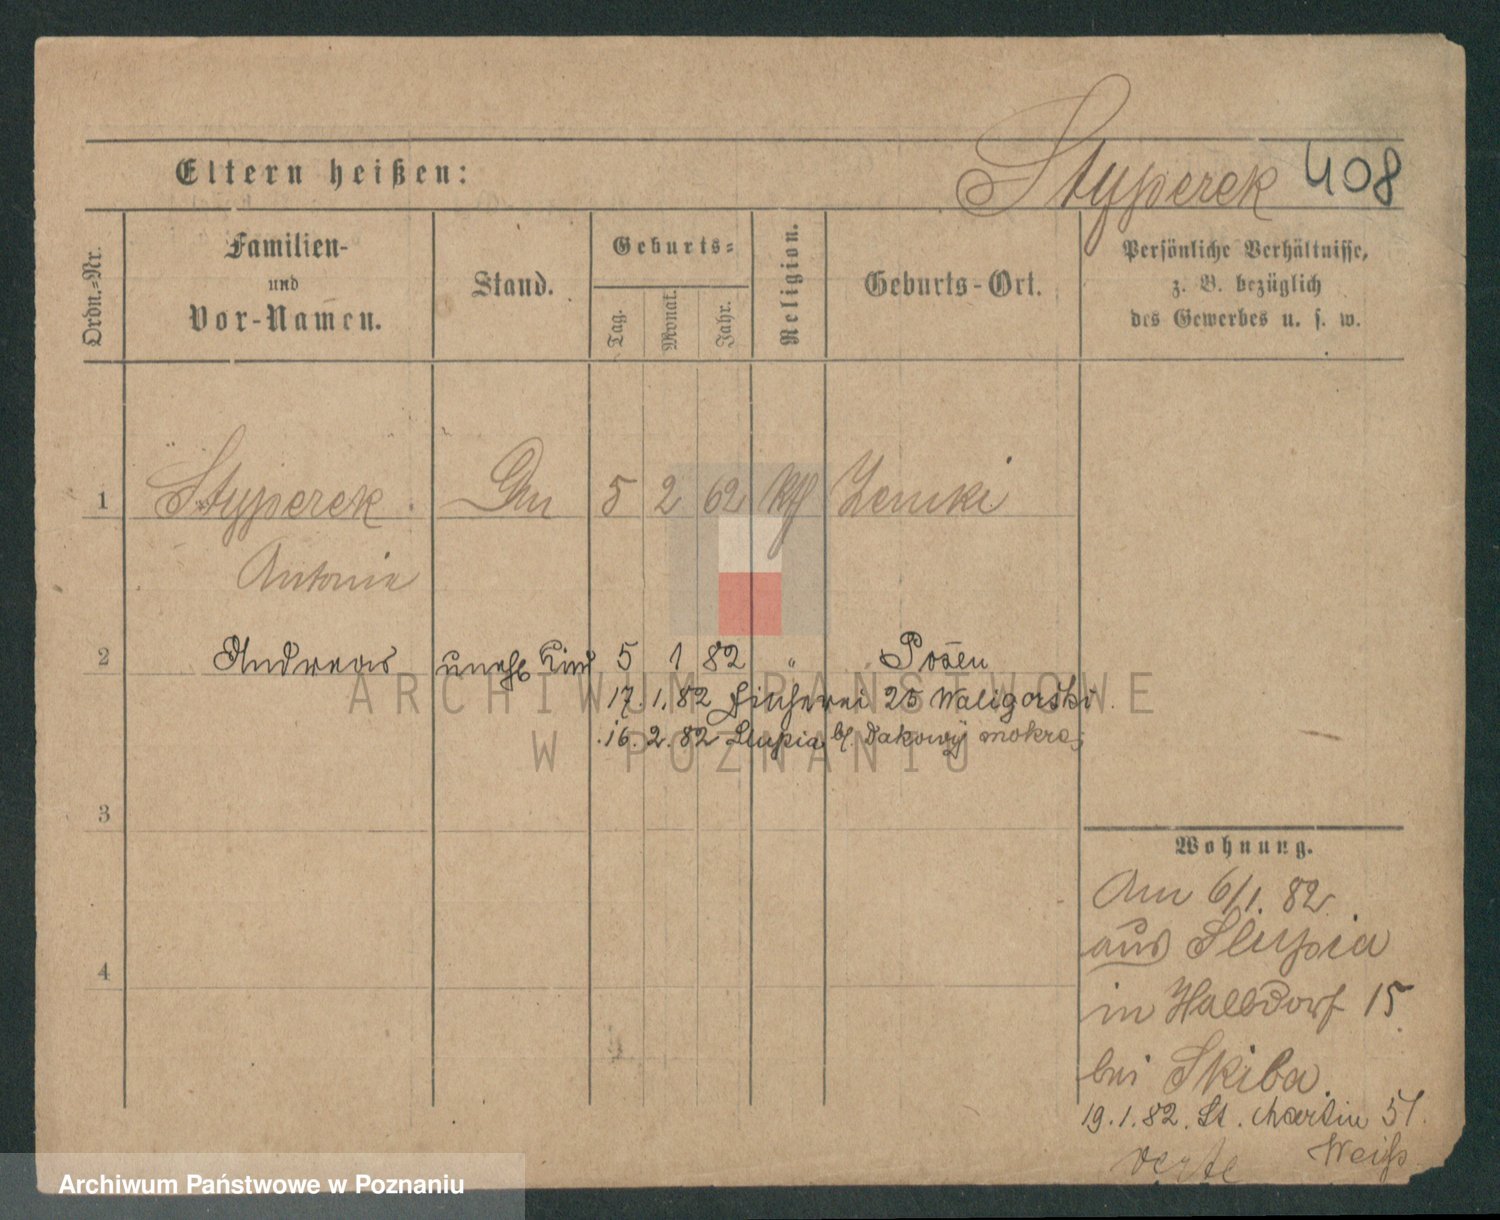 Styperek 408
Eltern heißen:
Ordn.-Nr.
Familien-
und
Vor-Namen.
Stand.
Geburts-
Tag.
Monat.
Jahr.
Religion.
Geburts-Ort.
Persönliche Verhältnisse,
z. B. bezüglich
des Gewerbes u. s. w.
1 Styperek 5 2 62 kth
Antonia
2 Andreas unehl. Kind 5 1 82 " Posen
17. 1. 82 Fischerei 25 Waligorski.
16. 2. 82 Slupia b/. Dakowy mokre
3
4
Wohnung.
Am 6/1. 82
aus Slupia
in Halbdorf 15
bei Skiba.
19. 1. 82. St. Martin 51.
Weiß
verte
ARCHIWUM PAŃSTWOWE
W POZNANIU
Archiwum Państwowe w Poznaniu